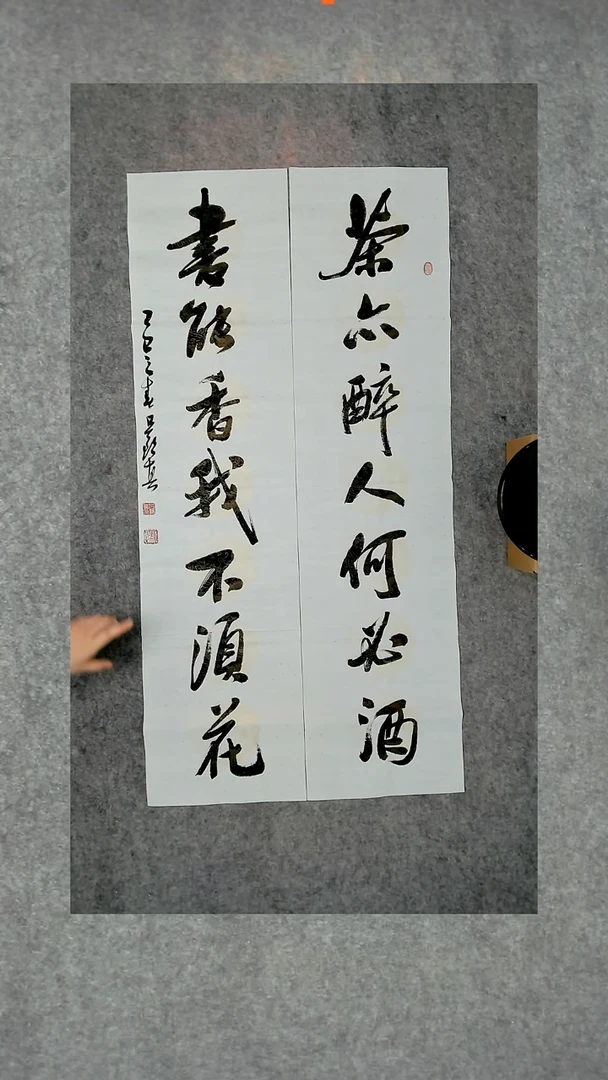 茶亦醉人何必酒
書能香我不須花
乙巳之春